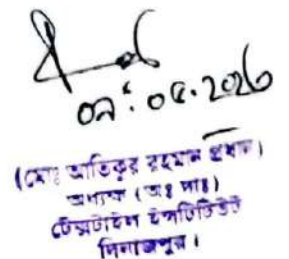 ০৭.০৫.২০২৬
(মোঃ আতিকুর রহমান প্রধান)
অধ্যক্ষ (অঃ দাঃ)
টেক্সটাইল ইন্সটিটিউট
দিনাজপুর।